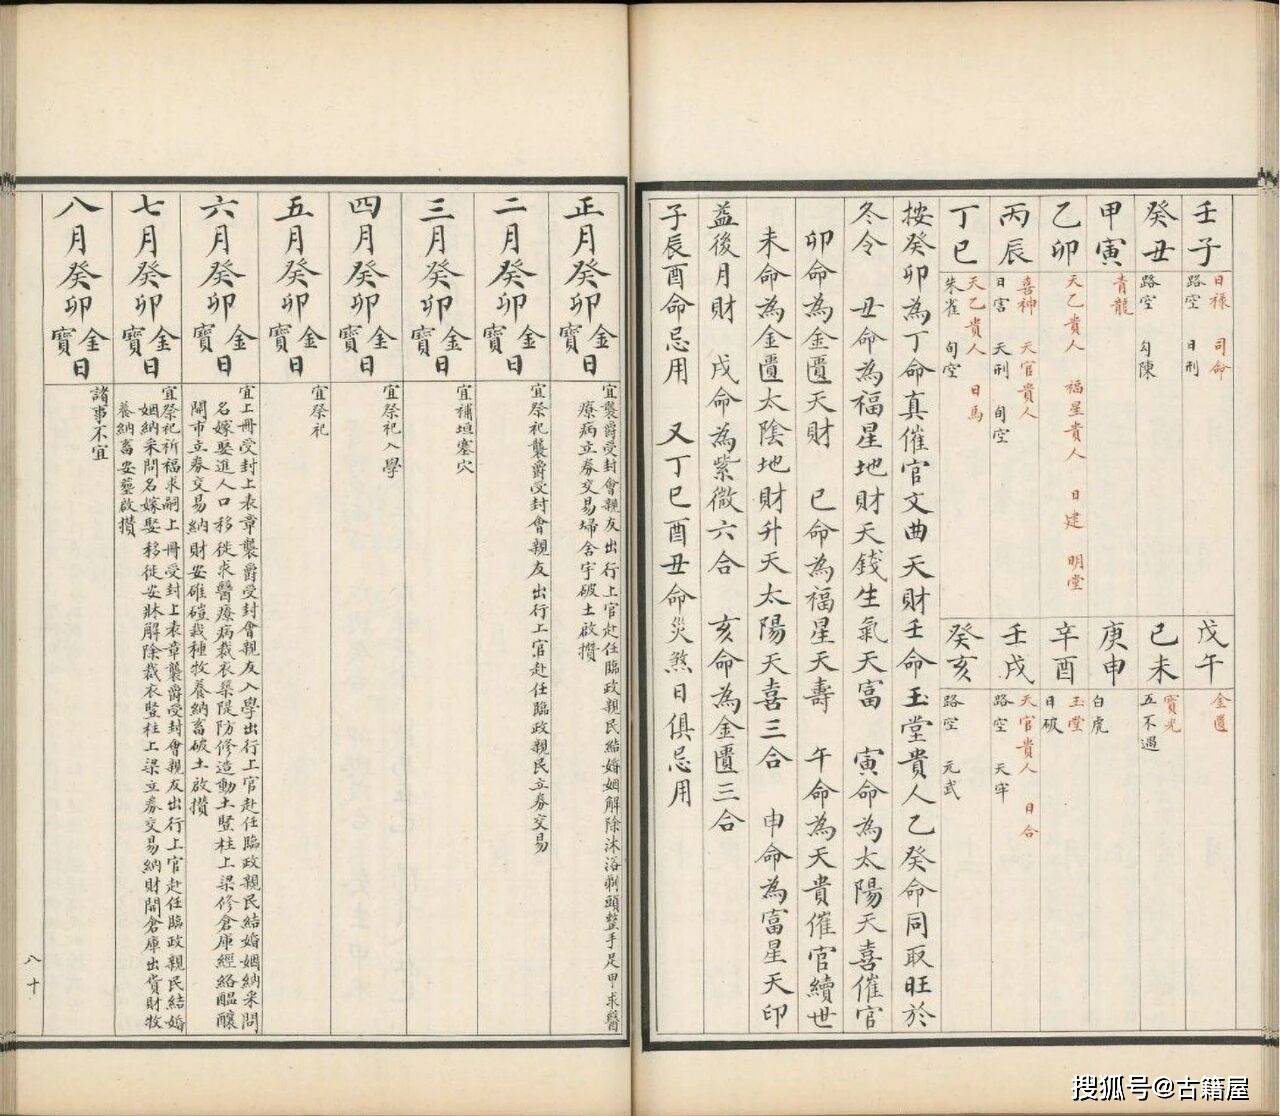 壬子 日祿 司命 路空 日刑
戊午 金匱
癸丑 路空 勾陳
己未 寶光 五不遇
甲寅 青龍
庚申 白虎
乙卯 天乙貴人 福星貴人 日建 明堂
辛酉 玉堂 日破
丙辰 喜神 天官貴人 日害 天刑 旬空
壬戌 天官貴人 日合 路空 天牢
丁巳 天乙貴人 日馬 朱雀 旬空
癸亥 路空 元武
按癸卯為丁命真催官文曲天財壬命玉堂貴人乙癸命同取旺於
冬令 丑命為福星地財天錢生氣天富 寅命為太陽天喜催官
卯命為金匱天財 巳命為福星天壽 午命為天貴催官續世
未命為金匱太陰地財升天太陽天喜三合 申命為富星天印
益後月財 戌命為紫微六合 亥命為金匱三合
子辰酉命忌用 又丁巳酉丑命災煞日俱忌用
正月癸卯金寶日
宜襲爵受封會親友出行上官赴任臨政親民結婚姻解除沐浴剃頭整手足甲求醫
療病立券交易埽舍宇破土啟攢
二月癸卯金寶日
宜祭祀襲爵受封會親友出行上官赴任臨政親民立券交易
三月癸卯金寶日
宜補垣塞穴
四月癸卯金寶日
宜祭祀入學
五月癸卯金寶日
宜祭祀
六月癸卯金寶日
宜上冊受封上表章襲爵受封會親友入學出行上官赴任臨政親民結婚姻納采問
名嫁娶進人口移徙求醫療病裁衣築隄防修造動土豎柱上梁修倉庫經絡醞釀
開市立券交易納財安碓磑栽種牧養納畜破土啟攢
七月癸卯金寶日
宜祭祀祈福求嗣上冊受封上表章襲爵受封會親友出行上官赴任臨政親民結婚
姻納采問名嫁娶移徙安牀解除裁衣豎柱上梁立券交易納財開倉庫出貨財牧
養納畜安葬啟攢
八月癸卯金寶日
諸事不宜
八十
搜狐号@古籍屋